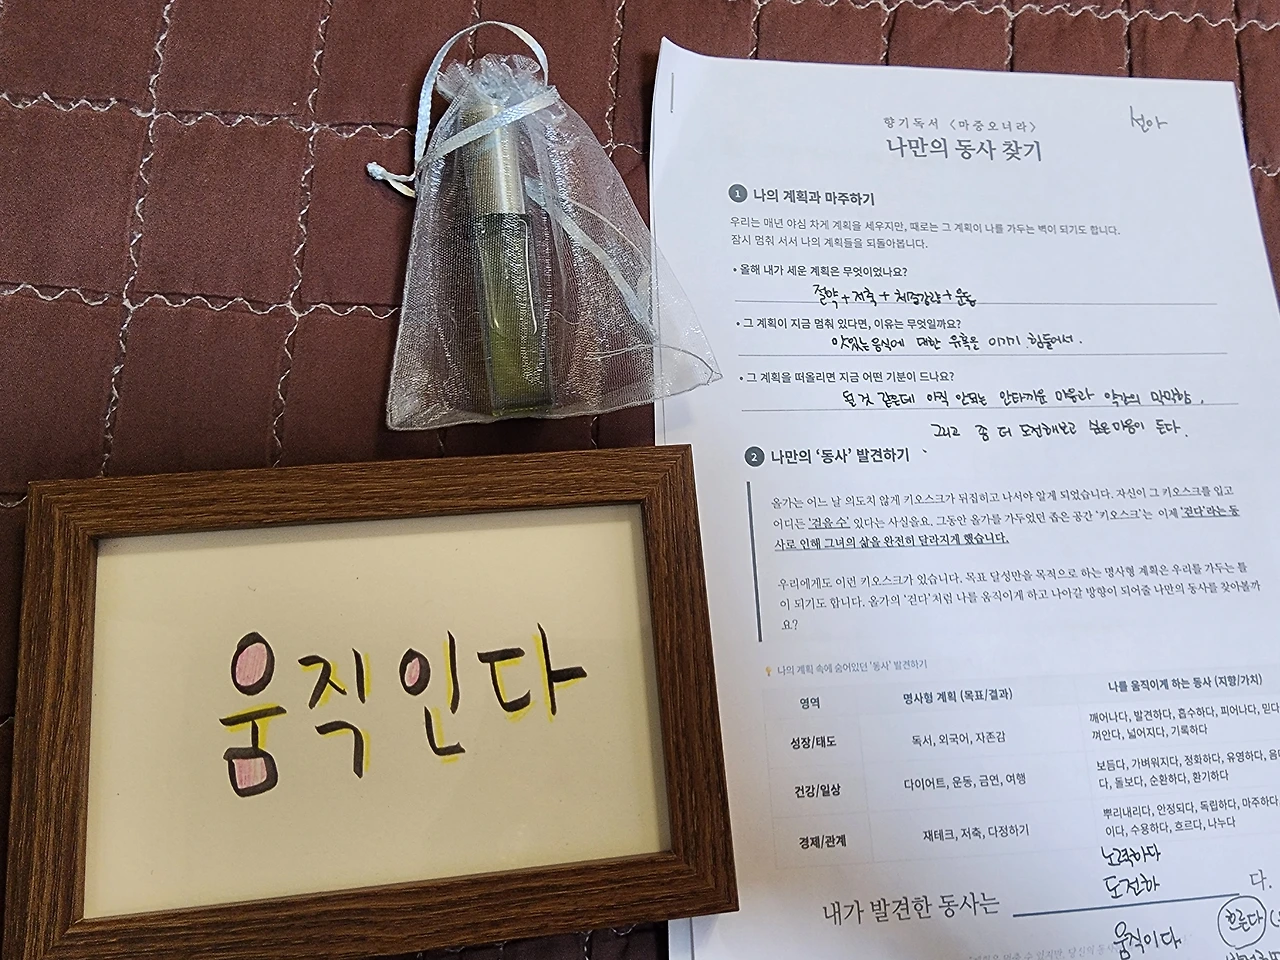 향기독서 <마중오너라>
선아
나만의 동사 찾기
1 나의 계획과 마주하기
우리는 매년 야심 차게 계획을 세우지만, 때로는 그 계획이 나를 가두는 벽이 되기도 합니다.
잠시 멈춰 서서 나의 계획들을 되돌아봅니다.
• 올해 내가 세운 계획은 무엇이었나요?
절약+저축+체중감량+운동
• 그 계획이 지금 멈춰 있다면, 이유는 무엇일까요?
맛있는 음식에 대한 유혹을 이기기 힘들어서.
• 그 계획을 떠올리면 지금 어떤 기분이 드나요?
될 것 같은데 아직 안되는 안타까운 마음과 약간의 막막함.
그리고 좀 더 도전해보고 싶은 마음이 든다.
2 나만의 '동사' 발견하기
올가는 어느 날 의도치 않게 키오스크가 뒤집히고 나서야 알게 되었습니다. 자신이 그 키오스크를 입고
어디든 '걸을 수' 있다는 사실을요. 그동안 올가를 가두었던 좁은 공간 '키오스크'는 이제 '걷다'라는 동
사로 인해 그녀의 삶을 완전히 달라지게 했습니다.
우리에게도 이런 키오스크가 있습니다. 목표 달성만을 목적으로 하는 명사형 계획은 우리를 가두는 틀
이 되기도 합니다. 올가의 '걷다'처럼 나를 움직이게 하고 나아갈 방향이 되어줄 나만의 동사를 찾아볼까
요?
나의 계획 속에 숨어있던 '동사' 발견하기
영역 명사형 계획 (목표/결과) 나를 움직이게 하는 동사 (지향/가치)
성장/태도 독서, 외국어, 자존감 깨어나다, 발견하다, 흡수하다, 피어나다, 믿다
껴안다, 넓어지다, 기록하다
건강/일상 다이어트, 운동, 금연, 여행 보듬다, 가벼워지다, 정화하다, 유영하다, 음미
다, 돌보다, 순환하다, 환기하다
경제/관계 재테크, 저축, 다정하기 뿌리내리다, 안정되다, 독립하다, 마주하다
이다, 수용하다, 흐르다, 나누다
노력하다
도전하
내가 발견한 동사는 다.
움직이다
흐른다
움직인다